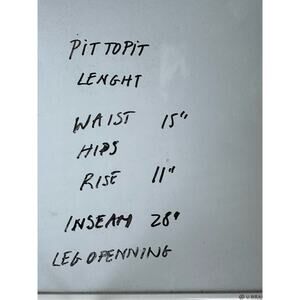 PIT TO PIT
LENGHT
WAIST 15"
HIPS
RISE 11"
INSEAM 28"
LEG OPENNING